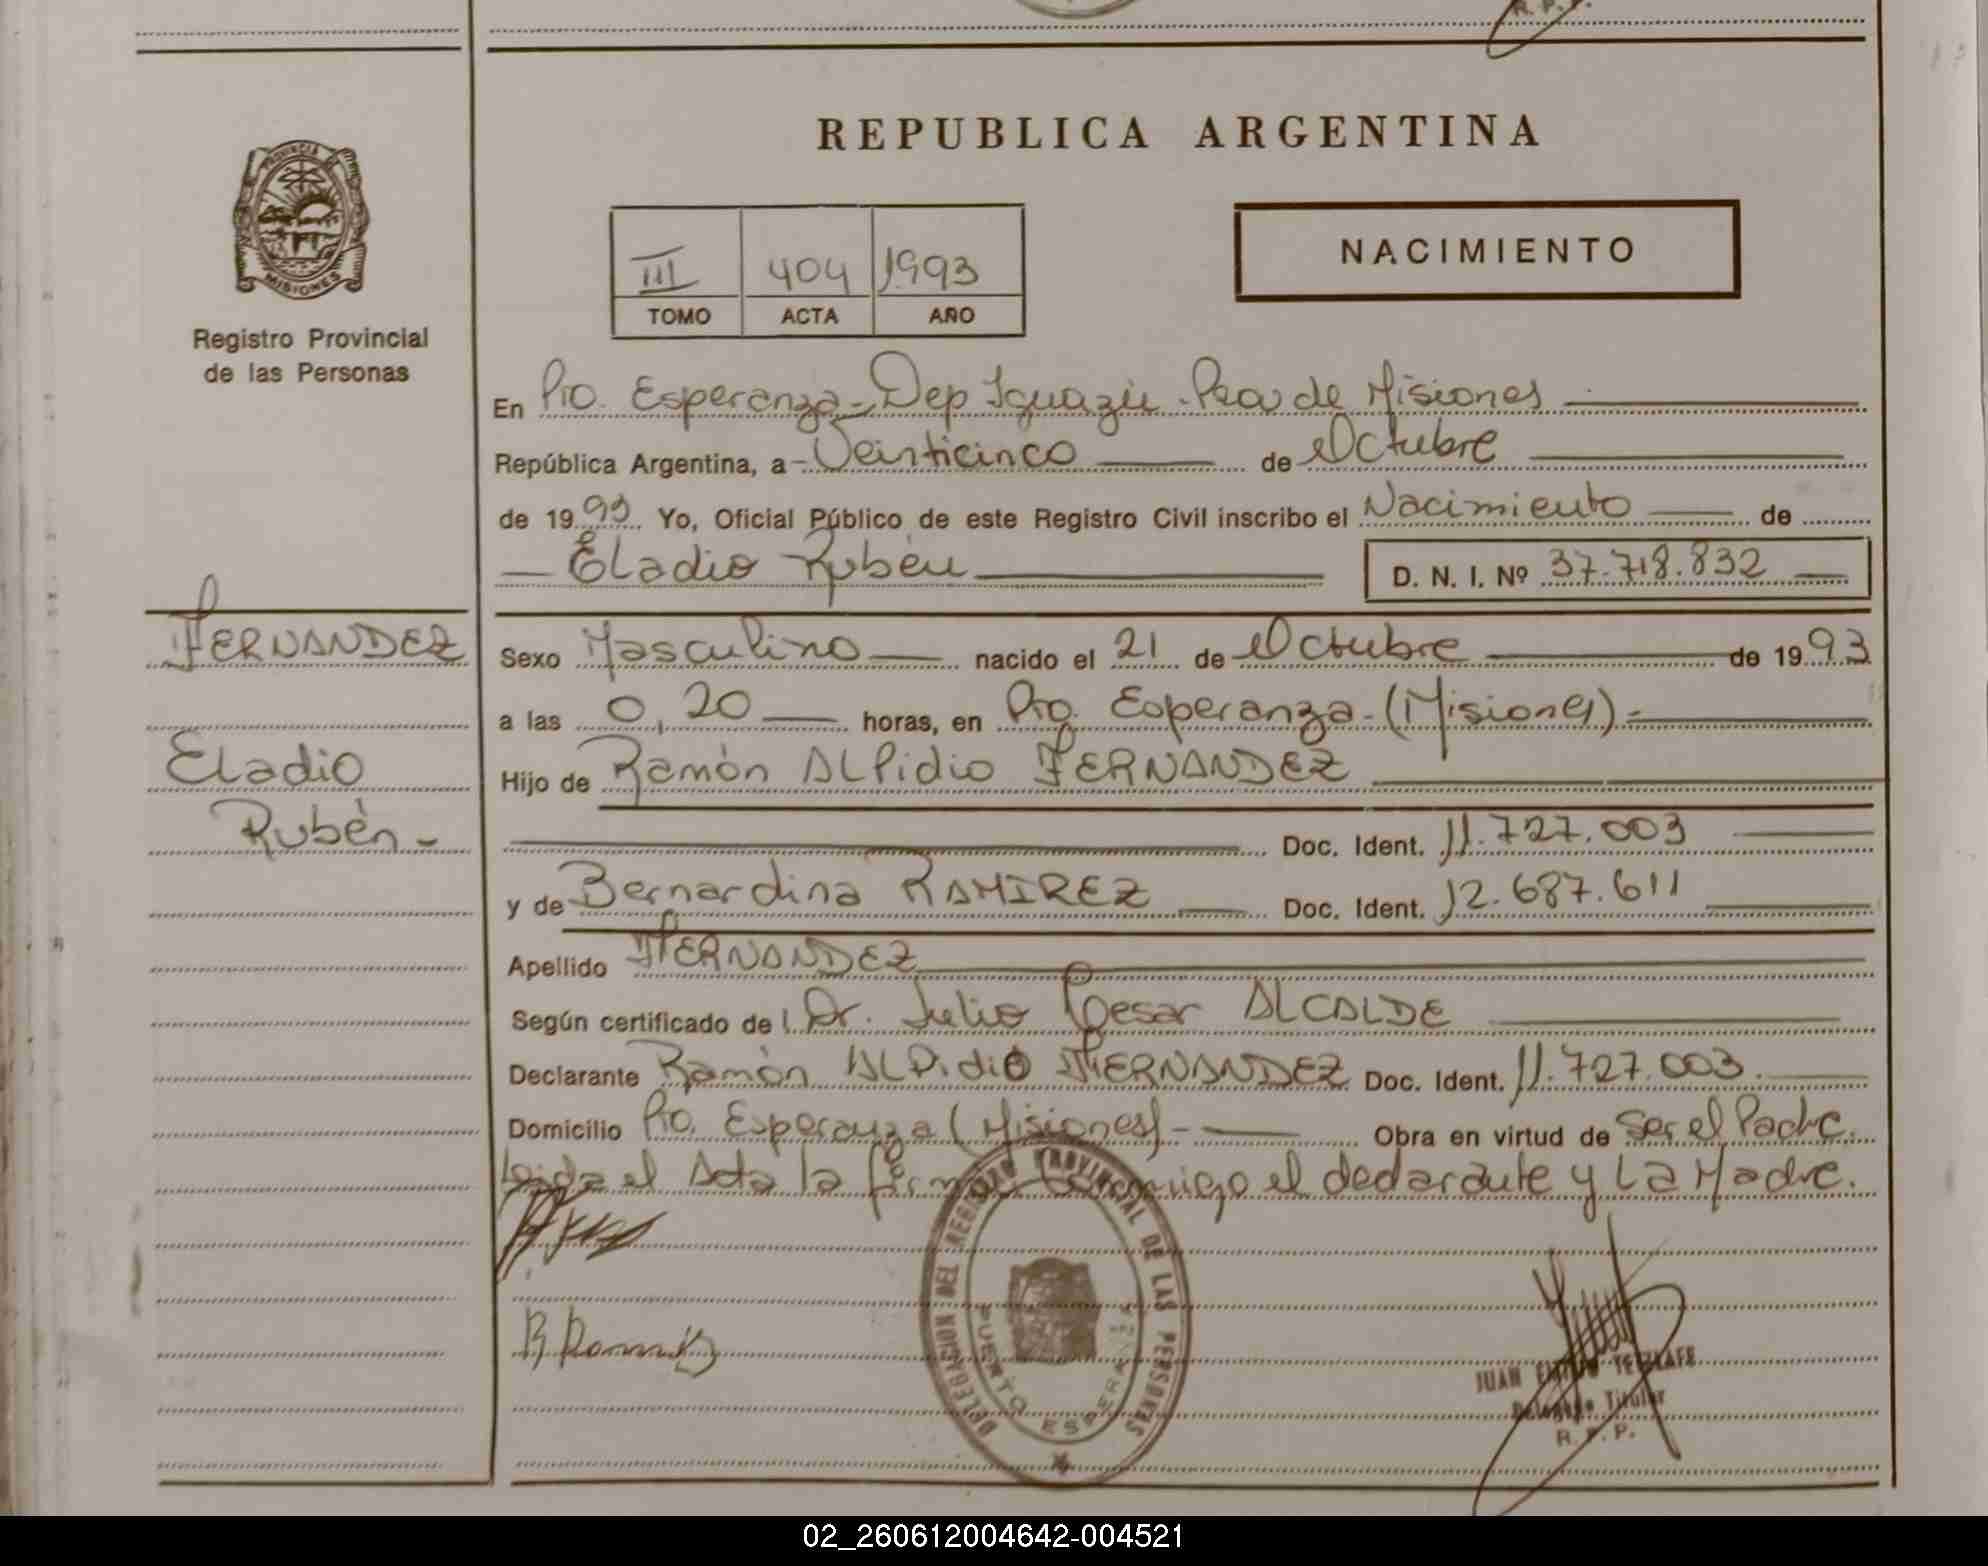 R. P. P.
REPUBLICA ARGENTINA
PROVINCIA
MISIONES
Registro Provincial
de las Personas
III 404 1993
TOMO ACTA AÑO
NACIMIENTO
En Pto. Esperanza - Dep Iguazú - Pcia de Misiones
República Argentina, a - Veinticinco de Octubre
de 1993 Yo, Oficial Público de este Registro Civil inscribo el Nacimiento de
Eladio Rubén D. N. I. Nº 37.718.832
FERNANDEZ
Eladio
Rubén -
Sexo Masculino nacido el 21 de Octubre de 1993
a las 0,20 horas, en Pto. Esperanza - (Misiones) -
Hijo de Ramón ALPidio FERNANDEZ
Doc. Ident. 11.727.003
y de Bernardina RAMIREZ Doc. Ident. 12.687.611
Apellido FERNANDEZ
Según certificado del Dr. Julio Cesar ALCALDE
Declarante Ramón ALPidio FERNANDEZ Doc. Ident. 11.727.003.
Domicilio Pto. Esperanza (Misiones) - Obra en virtud de Ser el Padre.
Leida el Acta la firman conmigo el declarante y La Madre.
DELEGACION DEL REGISTRO PROVINCIAL DE LAS PERSONAS
PUERTO ESPERANZA
JUAN
Delegado Titular
R. P. P.
02_260612004642-004521